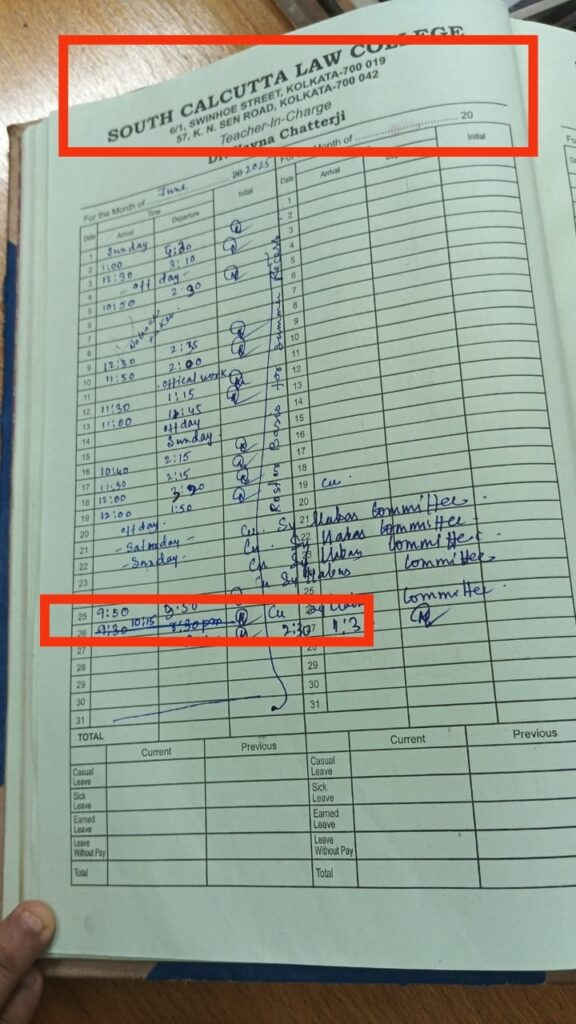 SOUTH CALCUTTA LAW COLLEGE
6/1, SWINHOE STREET, KOLKATA-700 019
57, K. N. SEN ROAD, KOLKATA-700 042
Teacher-In-Charge
Dr. Nayna Chatterji
For the Month of June 20 2025
For the Month of 20
Date Time Initial Date Arrival Initial
Arrival Departure
1 Sunday 1
2 1:00 4:30 2
3 12:30 3:10 3
4 - off day - 4
5 10:50 2:30 5
6 6
7
8
9 12:30 2:35 9
10 11:50 2:00 10
11 offical work 11
12 11:30 1:15 12
13 11:00 12:45 13
14 off day 14
15 Sunday
16 10:40 2:15 16
17 11:30 2:15 17
18 12:00 18
19 12:00 1:50 19 cu.
20 off day 20
21 - Saturday - Cu Syllabus Committee
22 - Sunday - Cu Syllabus Committee
23 Cu Syllabus Committee
Cu Syllabus Committee
25 9:50 3:30 Cu Syllabus Committee
26 9:30 10:15 4:30 pm 2:30 4:3
27
28 28
29
30 30
31 31
Roster Basis for Summer Recess
TOTAL
Current Previous Current Previous
Casual Leave Casual Leave
Sick Leave Sick Leave
Earned Leave Earned Leave
Leave Without Pay Leave Without Pay
Total Total